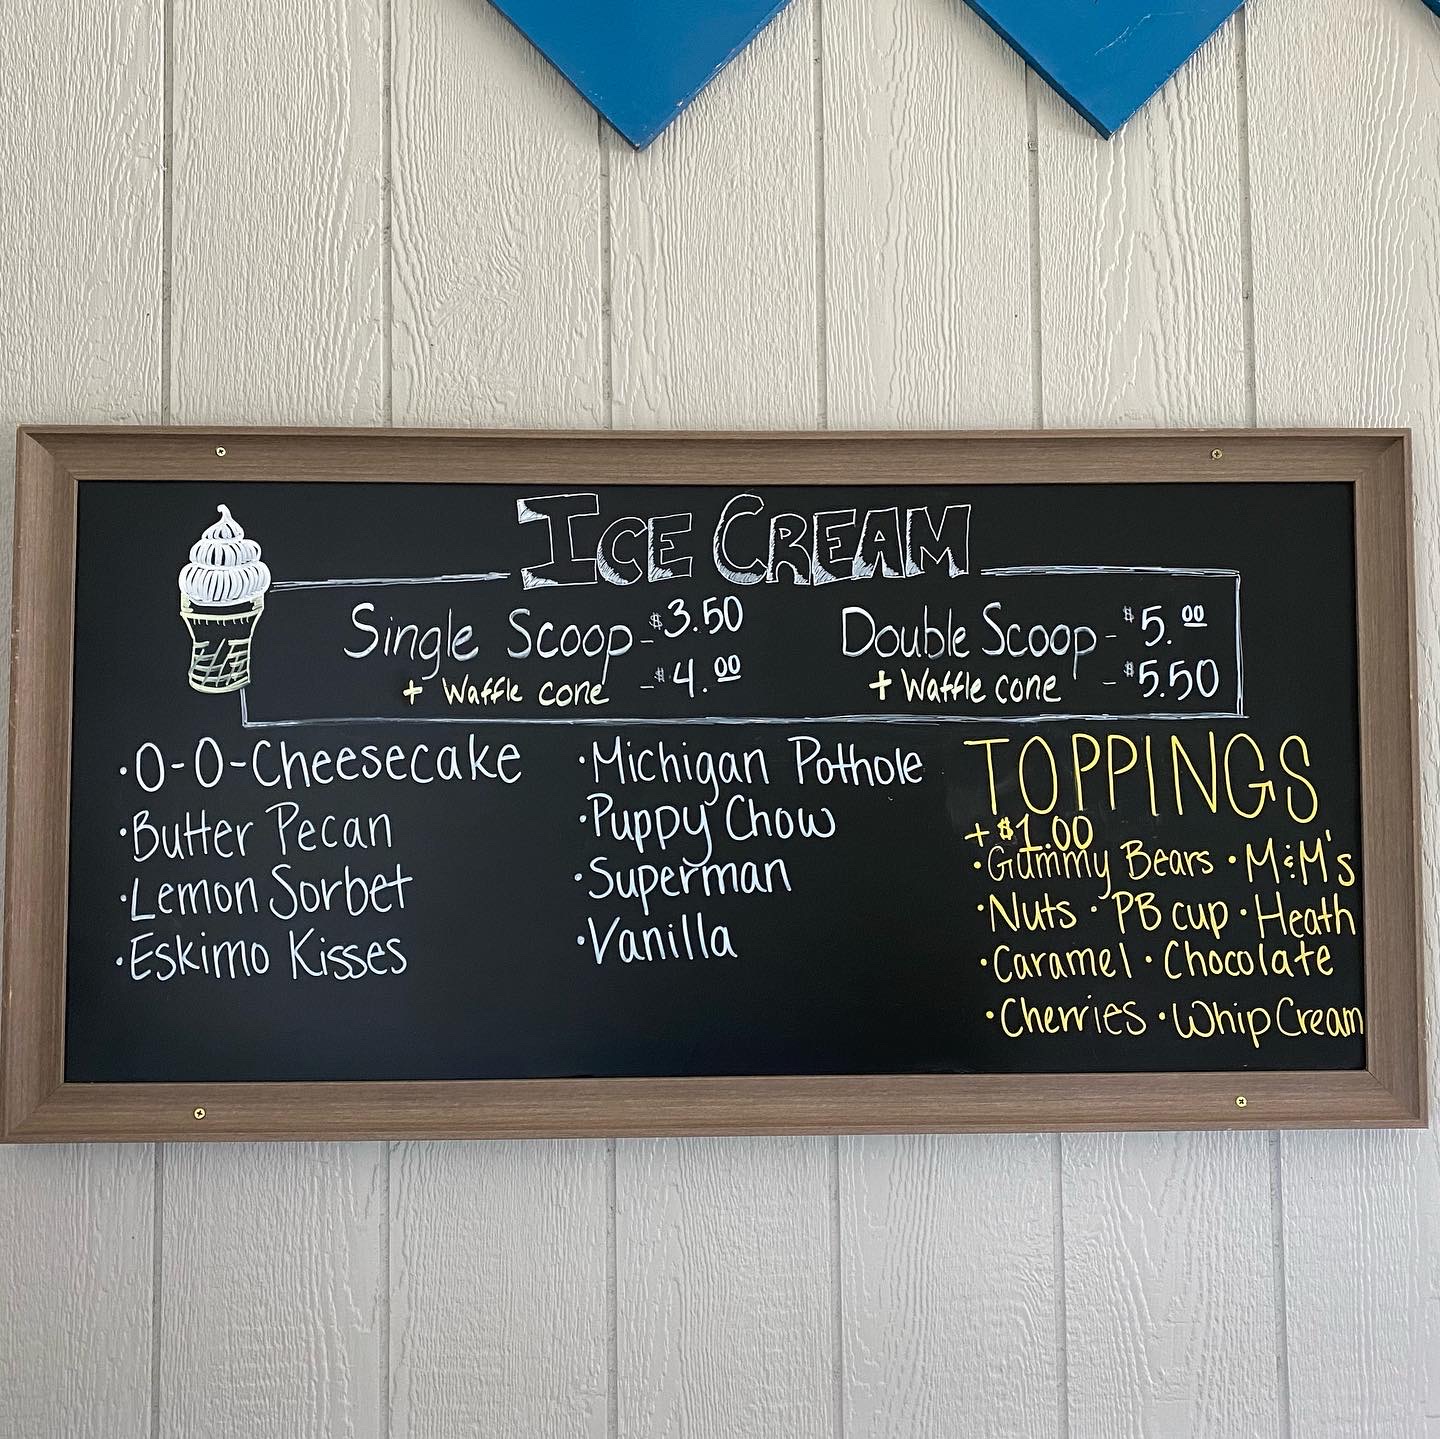 ICE CREAM
Single Scoop - $3.50
+ Waffle cone - $4.00
Double Scoop - $5.00
+ Waffle cone - $5.50
·O-O-Cheesecake
·Butter Pecan
·Lemon Sorbet
·Eskimo Kisses
·Michigan Pothole
·Puppy Chow
·Superman
·Vanilla
TOPPINGS
+ $1.00
·Gummy Bears ·M&M's
·Nuts ·PB cup ·Heath
·Caramel ·Chocolate
·Cherries ·Whip Cream